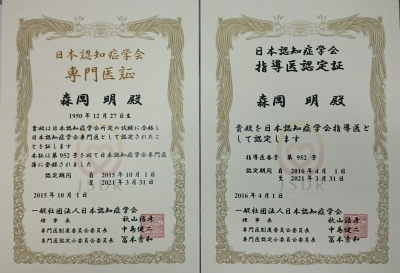 日本認知症学会
専門医証
森岡 明 殿
1950 年 12 月 27 日生
貴殿は日本認知症学会所定の試験に合格し
日本認知症学会専門医として認定されたこ
とを証します
本証は第 952 号を以て日本認知症学会専門医
簿に登録されました
認定期間 自 2015 年 10 月 1 日
至 2021 年 3 月 31 日
2015 年 10 月 1 日
一般社団法人日本認知症学会
理事長 秋山治彦
専門医制度委員会委員長 中島健二
専門医認定小委員会委員長 冨本秀和
JSDR
日本認知症学会
指導医認定証
森岡 明 殿
貴殿を日本認知症学会指導医と
して認定します
指導医番号 第 952 号
認定期間 自 2016 年 4 月 1 日
至 2021 年 3 月 31 日
2016 年 4 月 1 日
一般社団法人日本認知症学会
理事長 秋山治彦
専門医制度委員会委員長 中島健二
専門医認定小委員会委員長 冨本秀和
JSDR